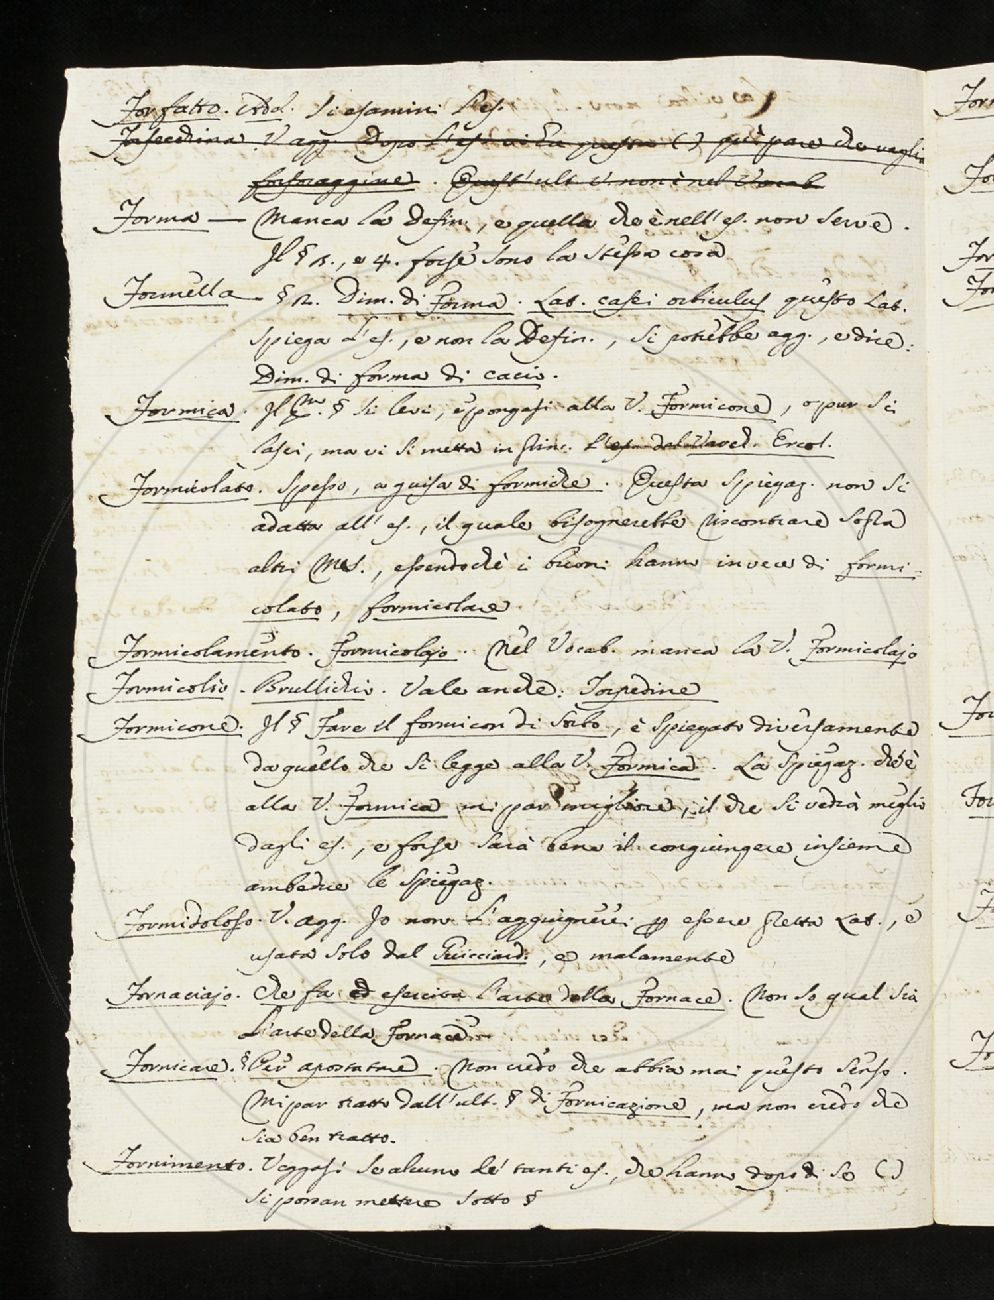 Forfatto. Add. Si esamini l'es.
Forsecchina. V. agg. Dopo l'es. vi è questa ( ) qui pare che vaglia
forforaggine. Quest'ult. V. non è nel Vocab
Forma — Manca la Defin., e quella che è nell'es. non serve.
Il § 3., e 4. forse sono la stessa cosa
Formella — § 2. Dim. di Forma. Lat. casei orbiculus questo Lat.
spiega l'es., e non la Defin., si potrebbe agg., e dire:
Dim. di forma di cacio.
Formica. Il § si levi, e pongasi alla V. Formicone, o pur si
lasci, ma vi si metta in fine: l'es. dal Varch. Ercol.
Formicolato. Spesso, a guisa di formiche. Questa spiegaz. non si
adatta all'es., il quale bisognerebbe riscontrare sopra
altri Mss., essendochè i buoni hanno invece di formi=
colato, formicolare
Formicolamento. Formicolajo. Nel Vocab. manca la V. Formicolajo
Formicolio. Brullichio. Vale anche: Torpedine
Formicone: Il § Fare il formicon di sorbo, è spiegato diversamente
da quello che si legge alla V. Formica. La spiegaz. ch'è
alla V. Formica mi par migliore, il che si vedrà meglio
dagli es., e forse sarà bene il congiungere insieme
ambedue le spiegaz.
Formidoloso. V. agg. Io non l'aggiugnerei p essere pretta Lat., e
usata solo dal Guicciard., e malamente
Fornaciajo. Che fa ed esercita l'arte della Fornace. Non so qual sia
l'arte della Fornace
Fornicare. § Per apostatare. Non credo che abbia mai questo senso.
Mi par tratto dall'ult. § di Fornicazione, ma non credo che
sia ben tratto.
Fornimento. Veggasi se alcuno de' tanti es., che hanno dopo di se ( )
si possan mettere sotto §